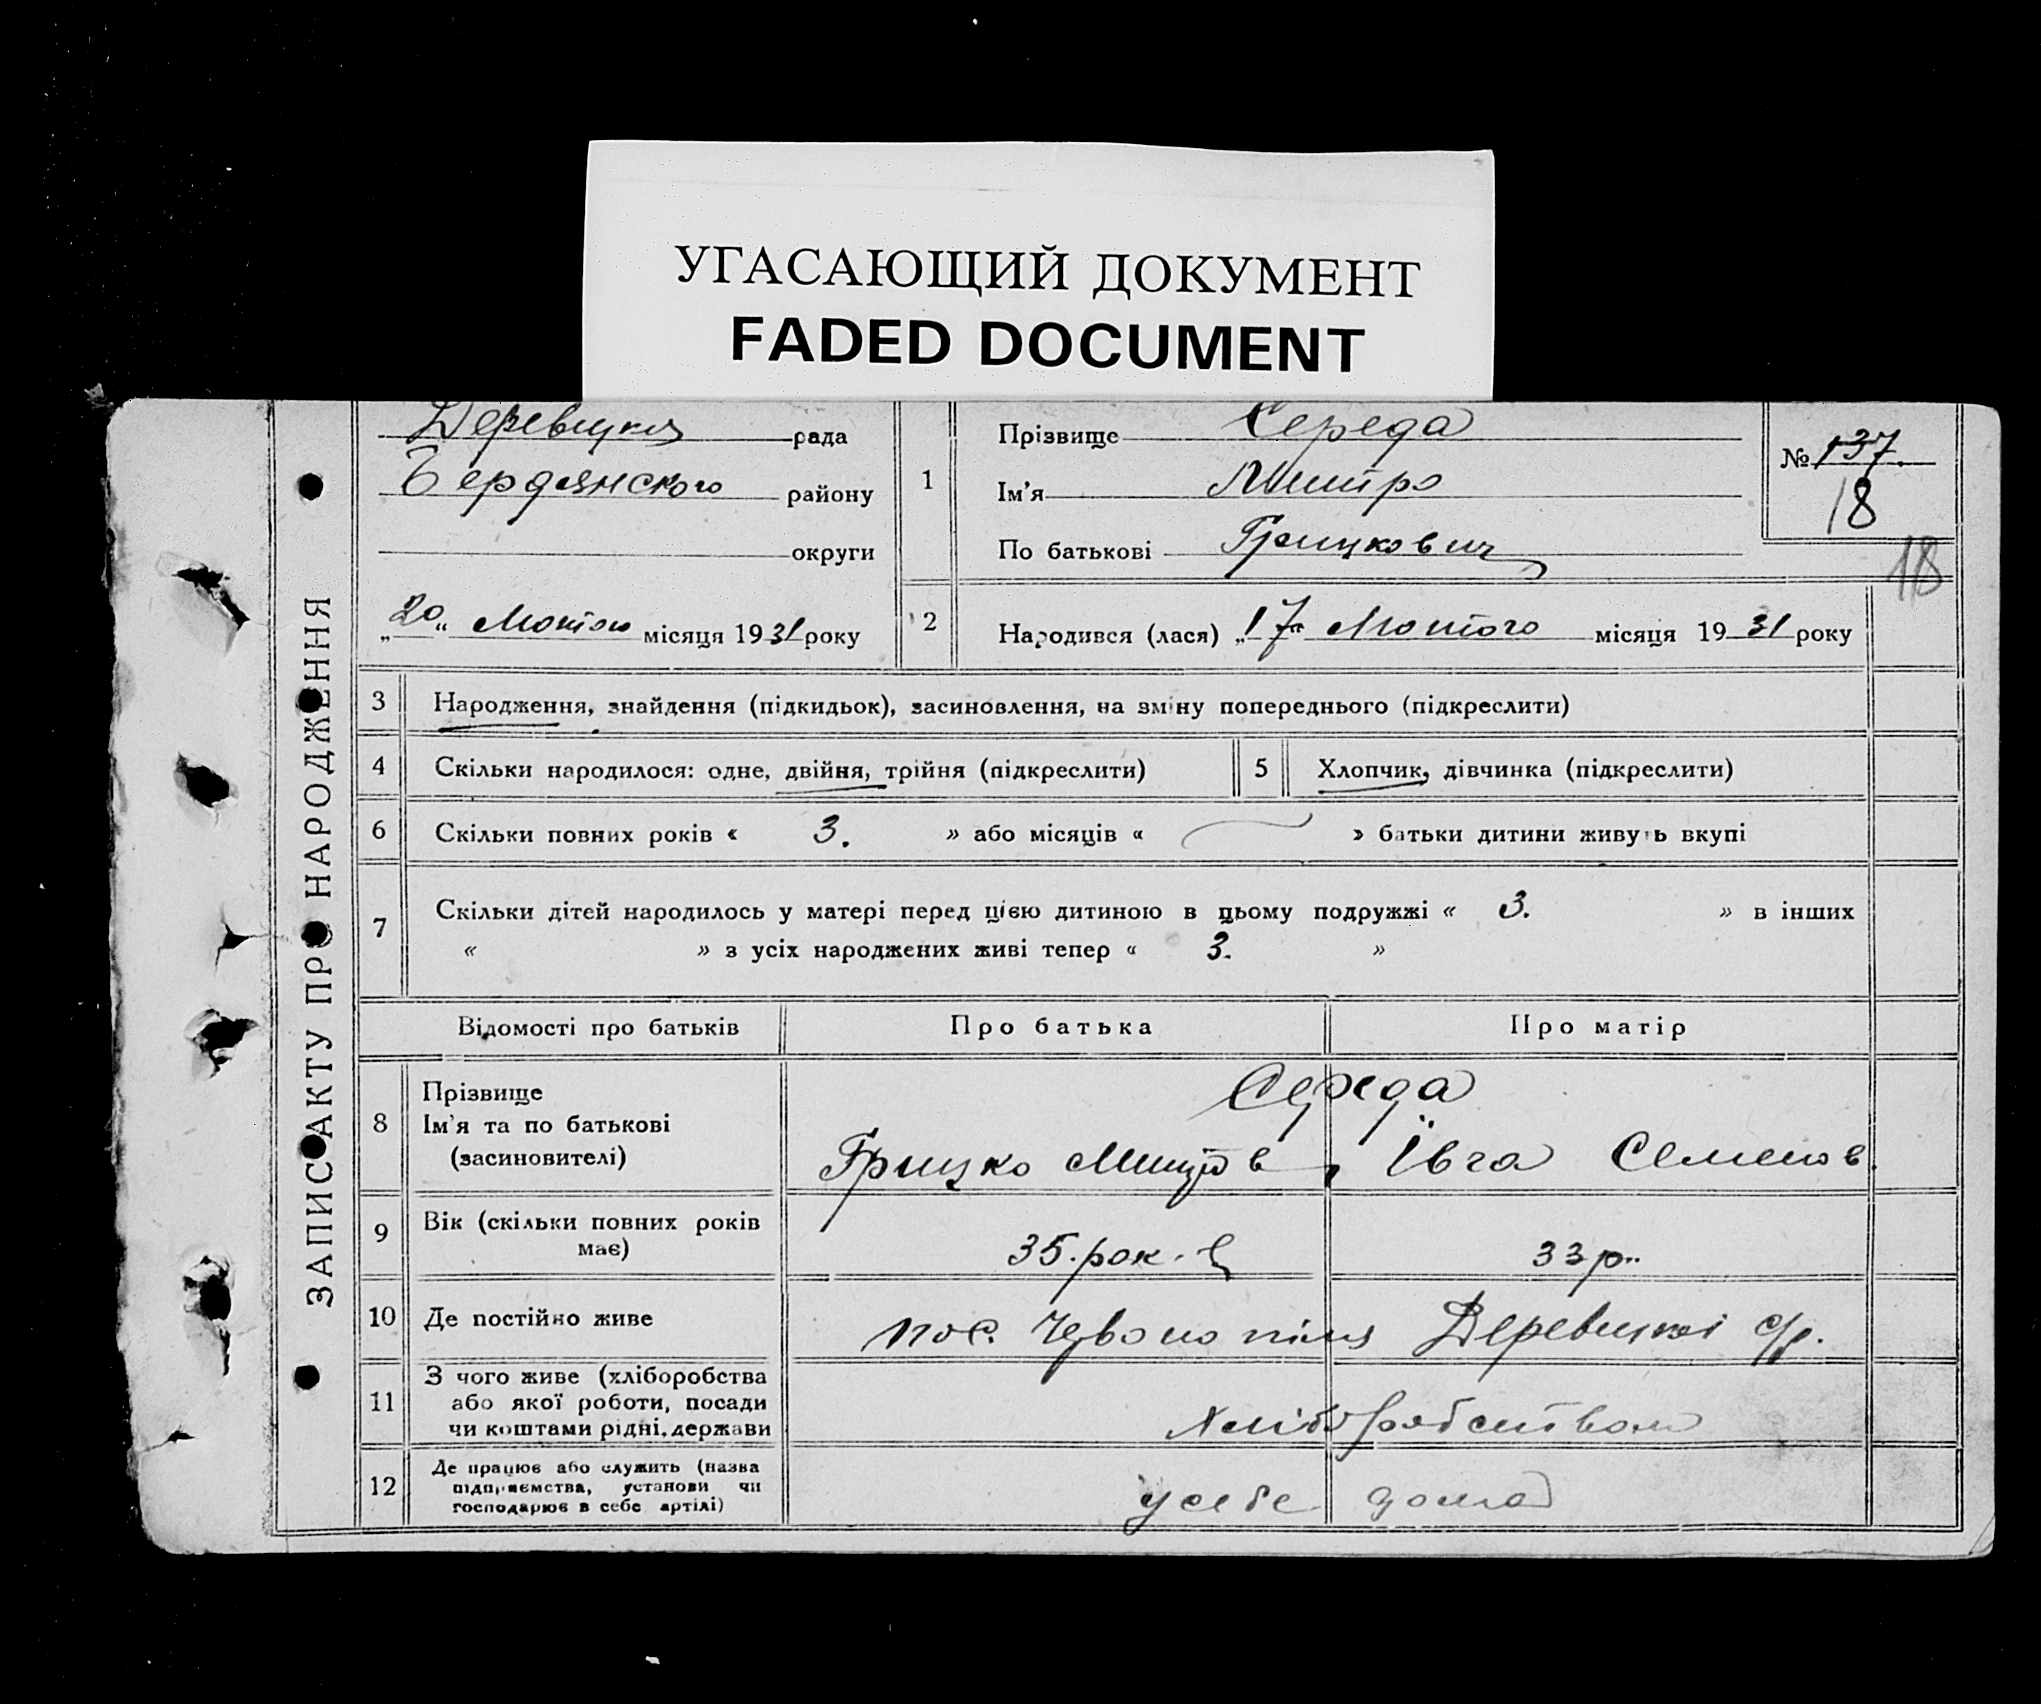 УГАСАЮЩИЙ ДОКУМЕНТ
FADED DOCUMENT
ЗАПИС АКТУ ПРО НАРОДЖЕННЯ
Деревецка рада
Бердянського району
округи
„20“ Лютого місяця 1931 року
1
Прізвище Середа
Ім'я Митро
По батькові Грицкович
№ 137.
18
18
2
Народився (лася) „17“ Лютого місяця 1931 року
3 Народження, знайдення (підкидьок), засиновлення, на зміну попереднього (підкреслити)
4 Скільки народилося: одне, двійня, трійня (підкреслити)
5 Хлопчик, дівчинка (підкреслити)
6 Скільки повних років « 3. » або місяців « » батьки дитини живуть вкупі
7 Скільки дітей народилось у матері перед цією дитиною в цьому подружжі « 3. » в інших
« » з усіх народжених живі тепер « 3. »
Відомості про батьків Про батька Про матір
8 Прізвище
Ім'я та по батькові
(засиновителі)
Середа
Грицко Митров, Ївга Семенов.
9 Вік (скільки повних років
має)
35. рок. 33 р.
10 Де постійно живе
пос. Червоно поля Деревецкої с/р.
11 З чого живе (хліборобства
або якої роботи, посади
чи коштами рідні, держави
хліборобством
12 Де працює або служить (назва
підприємства, установи чи
господарює в себе артілі)
у себе дома